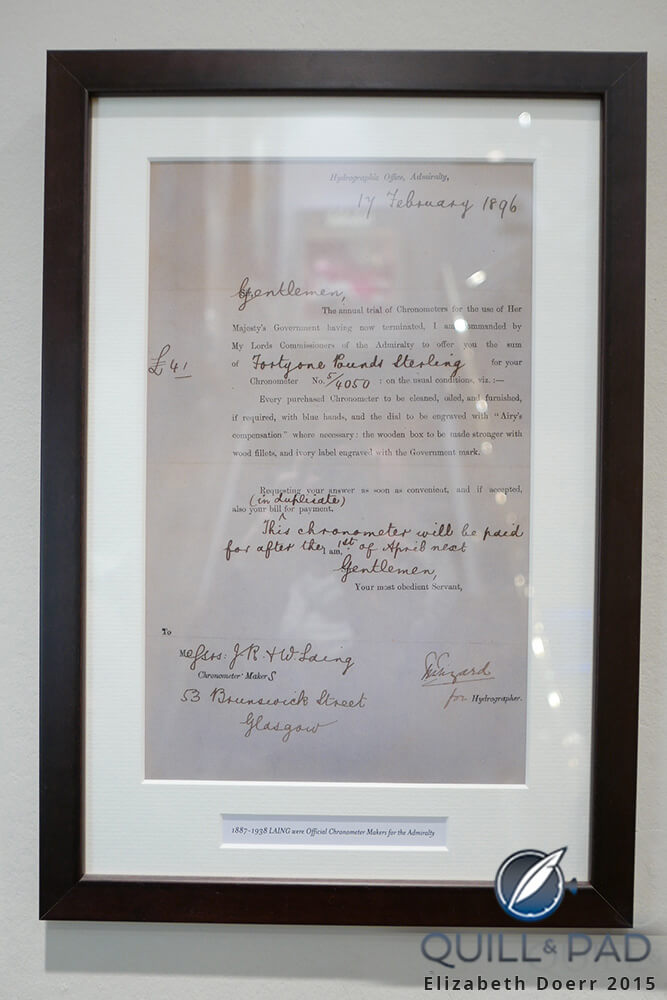 Hydrographic Office, Admiralty,
17 February 1896
Gentlemen,
The annual trial of Chronometers for the use of Her
Majesty's Government having now terminated, I am commanded by
My Lords Commissioners of the Admiralty to offer you the sum
£41 of Forty one Pounds Sterling for your
Chronometer No. 5/4050 : on the usual conditions, viz. :—
Every purchased Chronometer to be cleaned, oiled, and furnished,
if required, with blue hands, and the dial to be engraved with "Airy's
compensation" where necessary: the wooden box to be made stronger with
wood fillets, and ivory label engraved with the Government mark.
Requesting your answer as soon as convenient, and if accepted,
(in duplicate)
also your bill for payment.
This chronometer will be paid
for after the 1st of April next
I am,
Gentlemen,
Your most obedient Servant,
To
Messrs: J. R. & W. Laing
Chronometer Makers
53 Brunswick Street
Glasgow
for Hydrographer.
1887-1938 LAING were Official Chronometer Makers for the Admiralty
QUILL & PAD
Elizabeth Doerr 2015